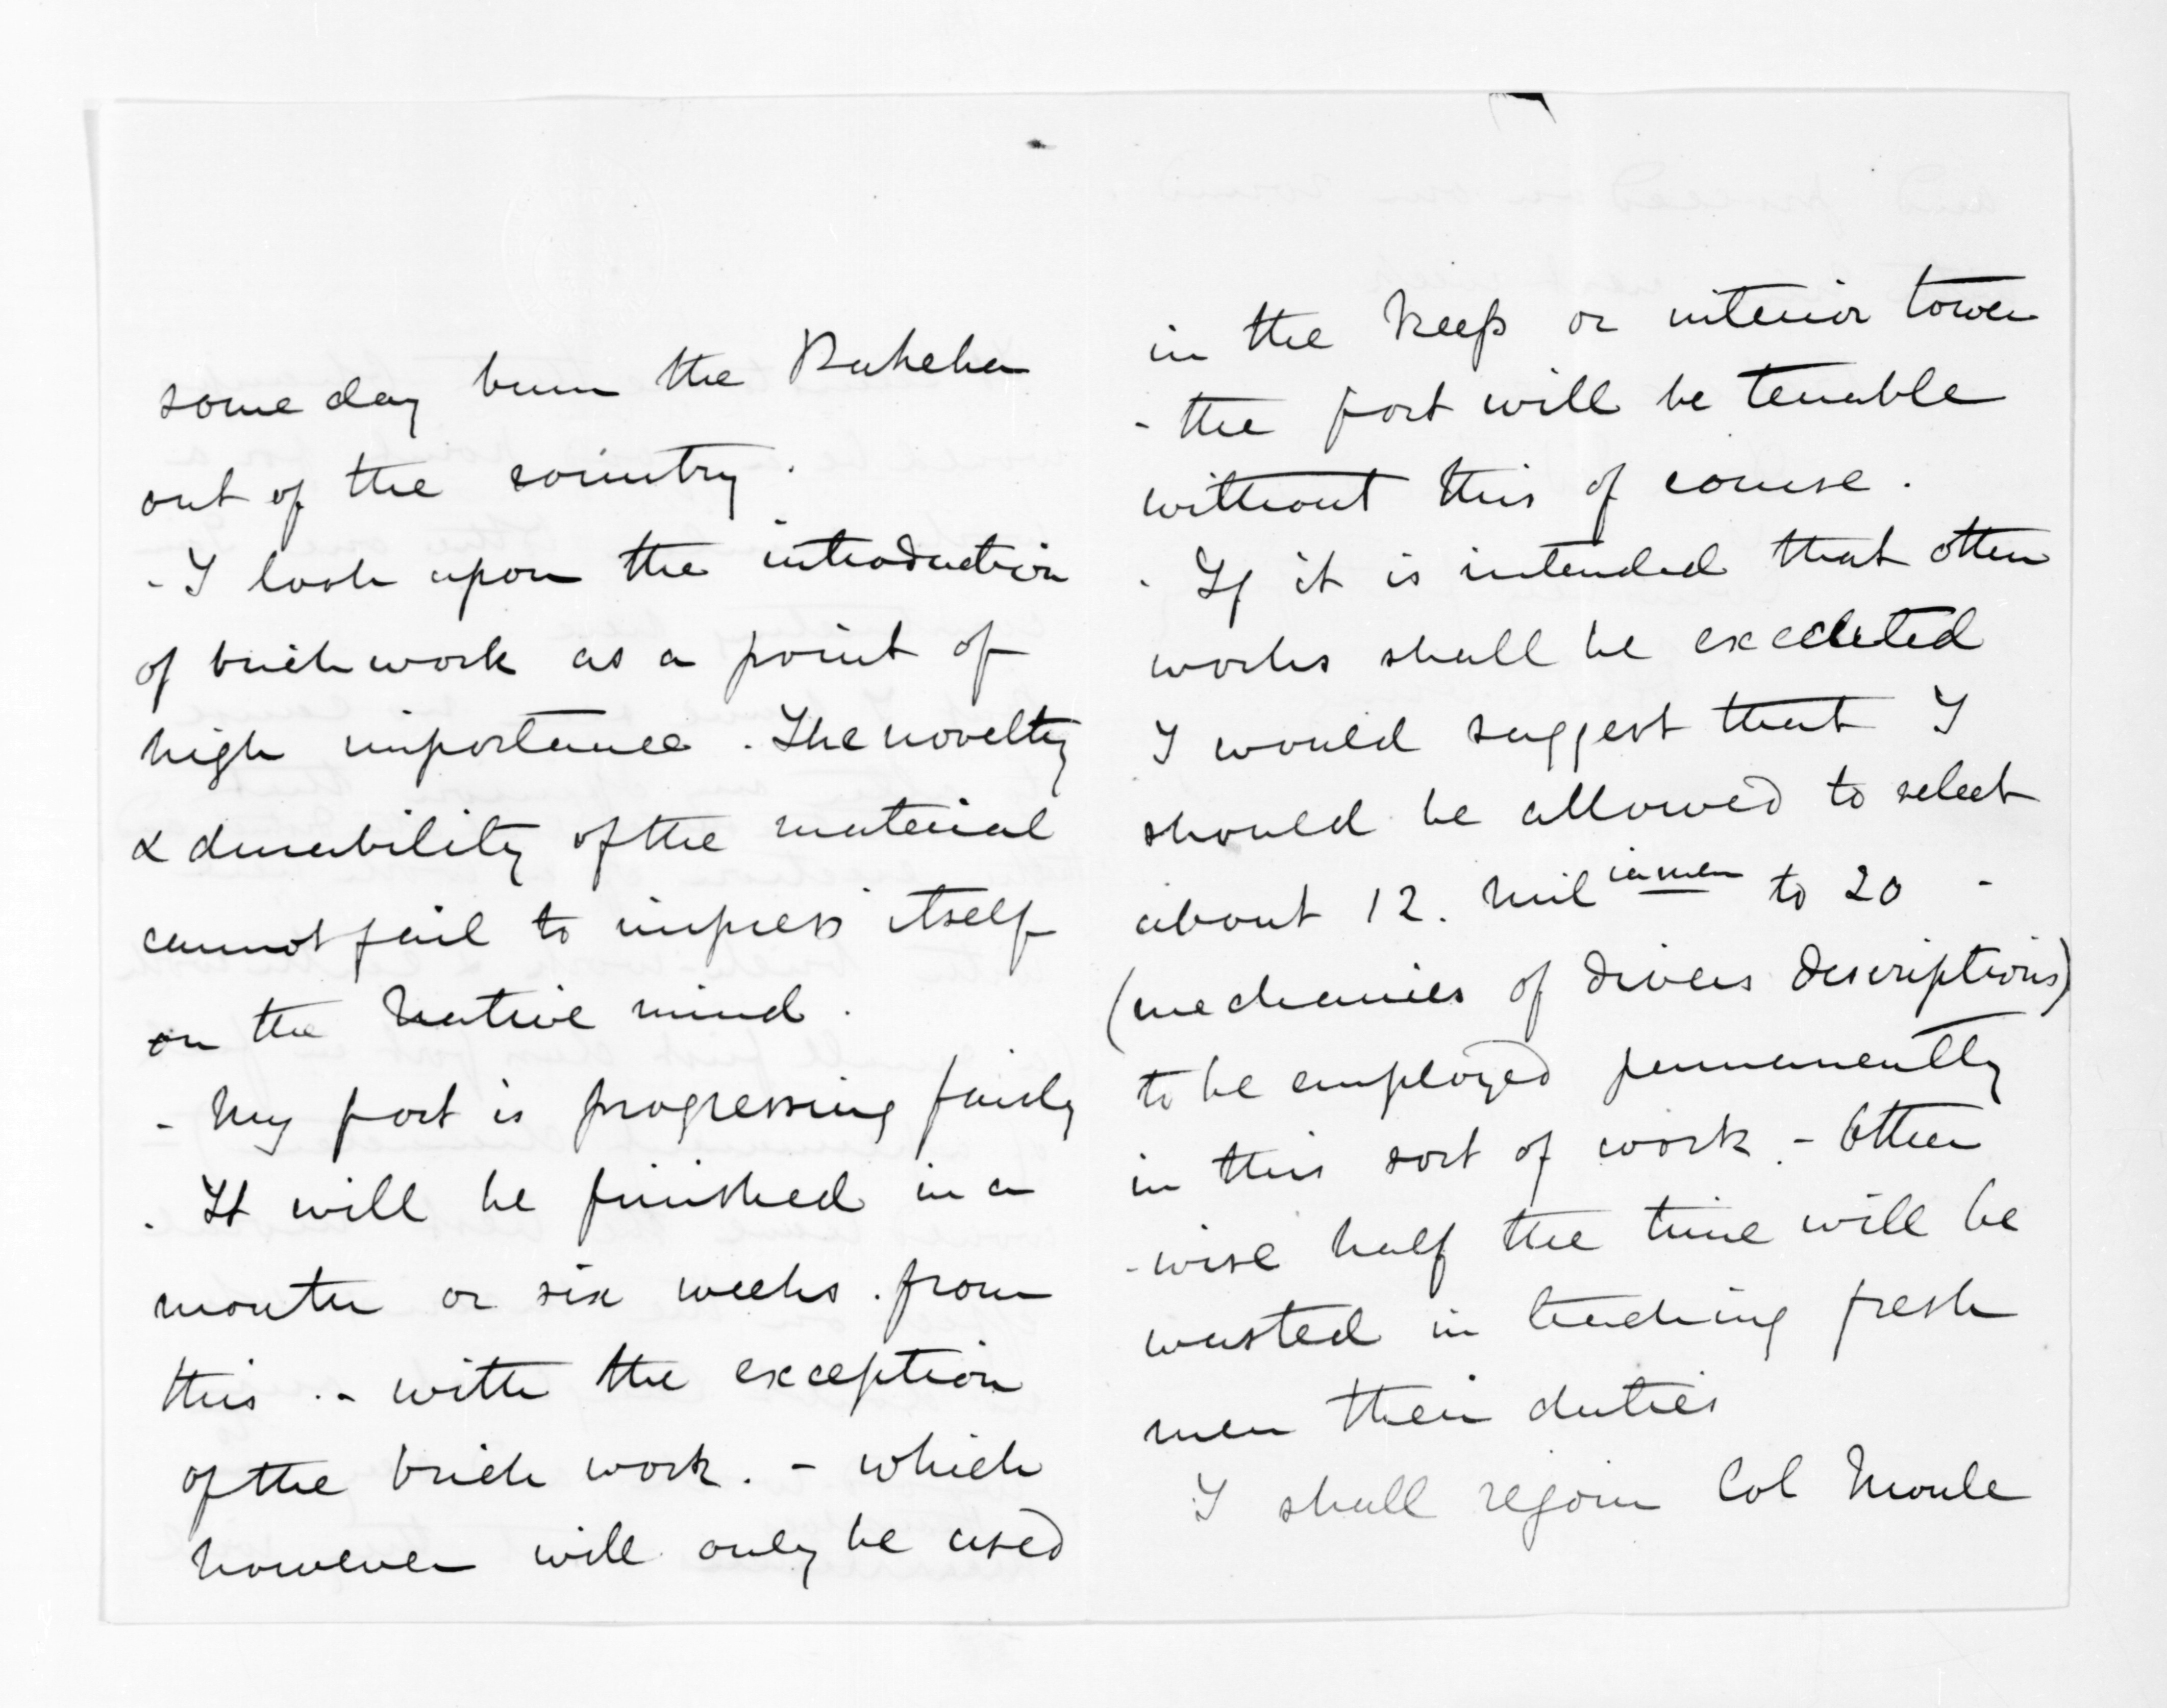 some day burn the Pakeha
out of the country.
- I look upon the introduction
of brickwork as a point of
high importance. The novelty
& durability of the material
cannot fail to impress itself
on the Native mind.
- My fort is progressing fairly
. It will be finished in a
month or six weeks. from
this. - with the exception
of the brick work. - which
however will only be used
in the Keep or interior tower
- the fort will be tenable
without this of course.
. If it is intended that other
works shall be executed
I would suggest that I
should be allowed to select
about 12. Militiamen to 20 -
(mechanics of divers descriptions)
to be employed permanently
in this sort of work. - Other
-wise half the time will be
wasted in teaching fresh
men their duties
I shall rejoin Col Moule